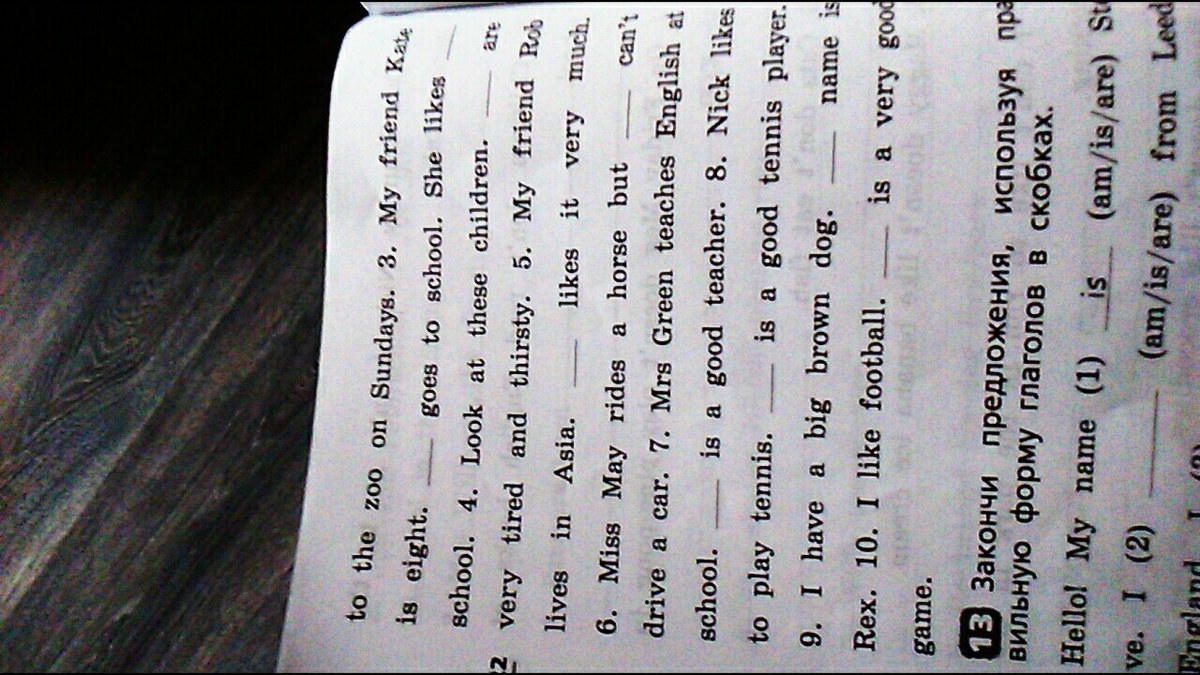 to the zoo on Sundays. 3. My friend Kate
is eight. ___ goes to school. She likes ___
school. 4. Look at these children. ___ are
very tired and thirsty. 5. My friend Rob
lives in Asia. ___ likes it very much.
6. Miss May rides a horse but ___ can't
drive a car. 7. Mrs Green teaches English at
school. ___ is a good teacher. 8. Nick likes
to play tennis. ___ is a good tennis player.
9. I have a big brown dog. ___ name is
Rex. 10. I like football. ___ is a very good
game.
13 Закончи предложения, используя пра
вильную форму глаголов в скобках.
Hello! My name (1) is (am/is/are) St
ve. I (2) ___ (am/is/are) from Leed
England. I